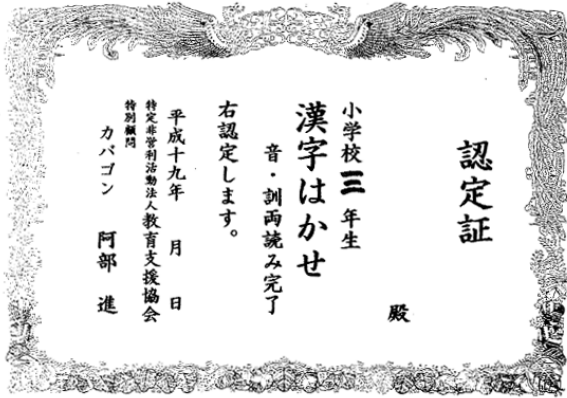 認定証
殿
小学校三年生
漢字はかせ
音・訓両読み完了
右認定します。
平成十九年 月 日
特定非営利活動法人教育支援協会
特別顧問
カバゴン 阿部 進